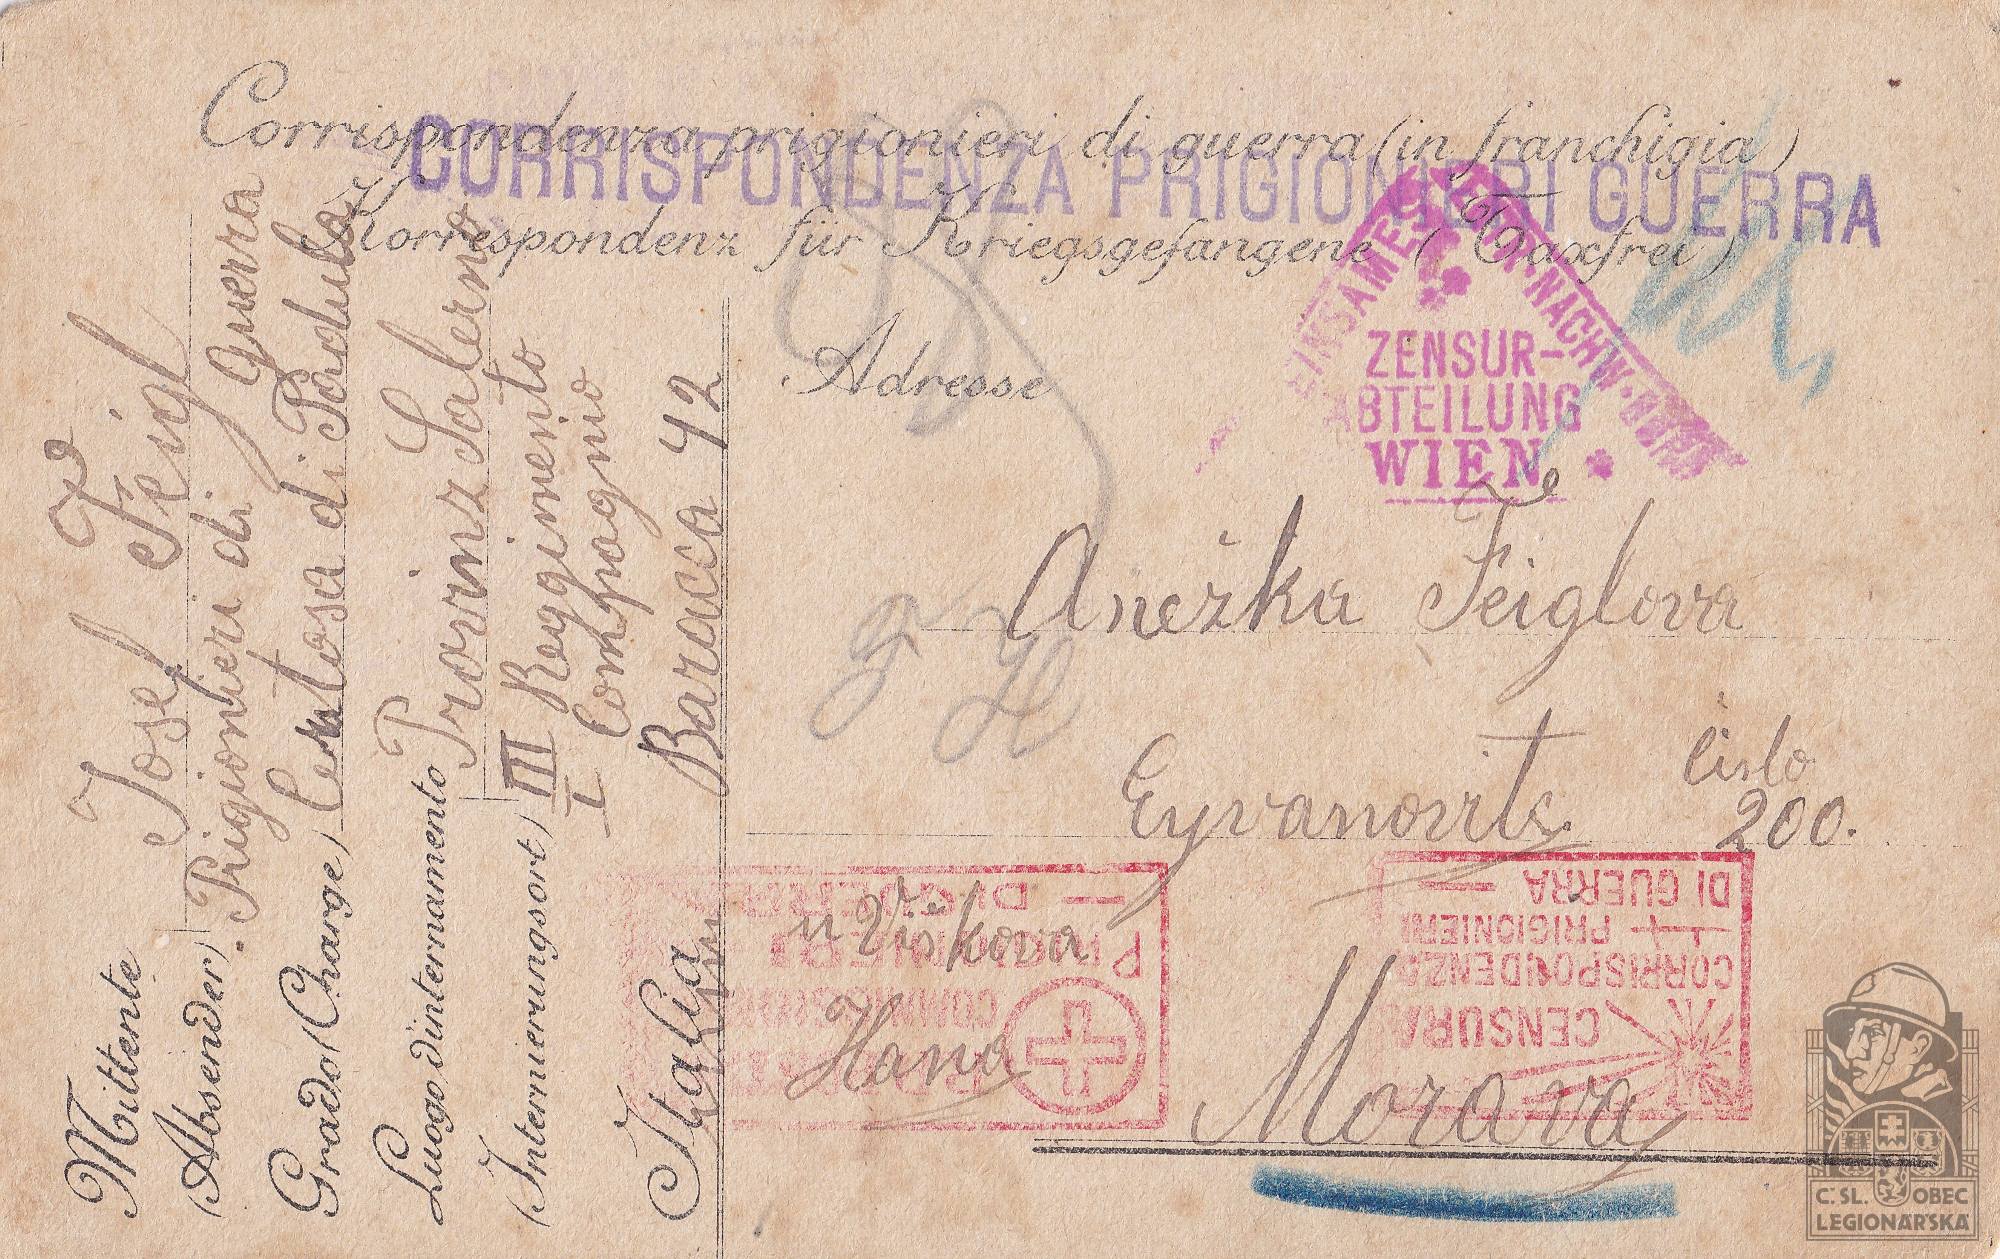 Corrispondenza prigionieri di guerra (in franchigia)
CORRISPONDENZA PRIGIONIERI GUERRA
Korrespondenz für Kriegsgefangene (Taxfrei)
Adresse
ZENSUR-
ABTEILUNG
WIEN
Anežka Feiglova
Eyvanovits
čislo
200.
u Viškova
Hana
Morava
Mittente Josef Feigl
(Absender) Prigionieri di guerra
Grado (Charge) Certosa di Padula
Luogo d'internamento Provinz Salerno
(Internierungsort) III Reggimento
I Compagnio
Baracca 42
Italia
CENSURA
CORRISPONDENZA
PRIGIONIERI
DI GUERRA
DI GUERRA
Č.SL. OBEC
LEGIONÁŘSKÁ